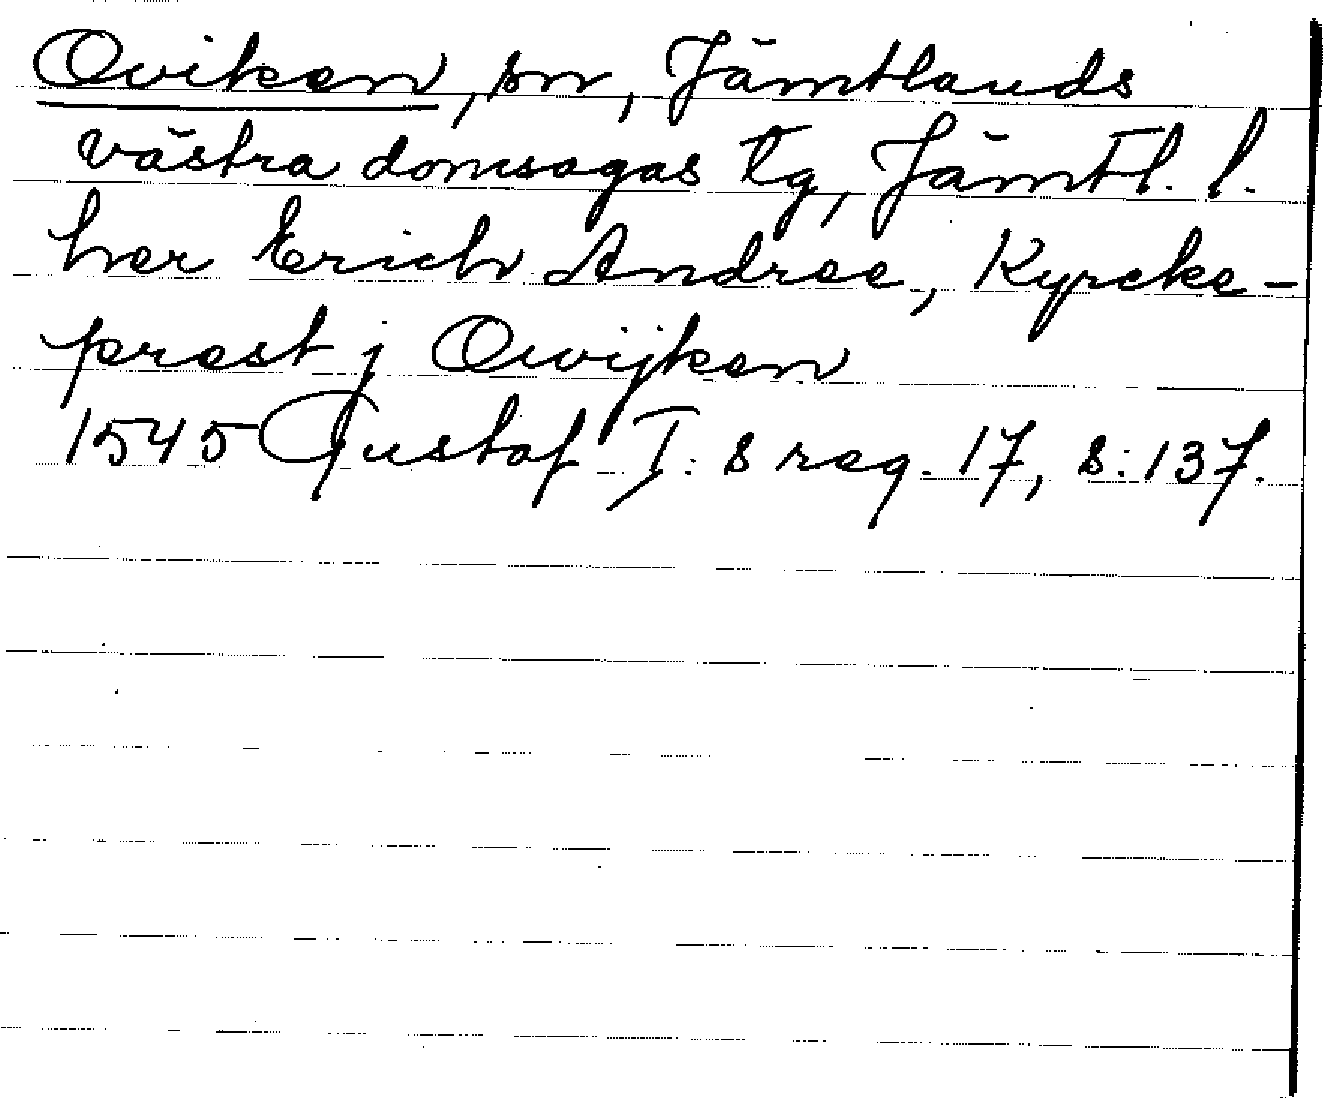 Oviken, sn, Jämtlands
västra domsagas tg, Jämtl. l.
her Erich Andree, Kyrcke-
prest j Owijken
1545 Gustaf I: s reg. 17, s. 137.